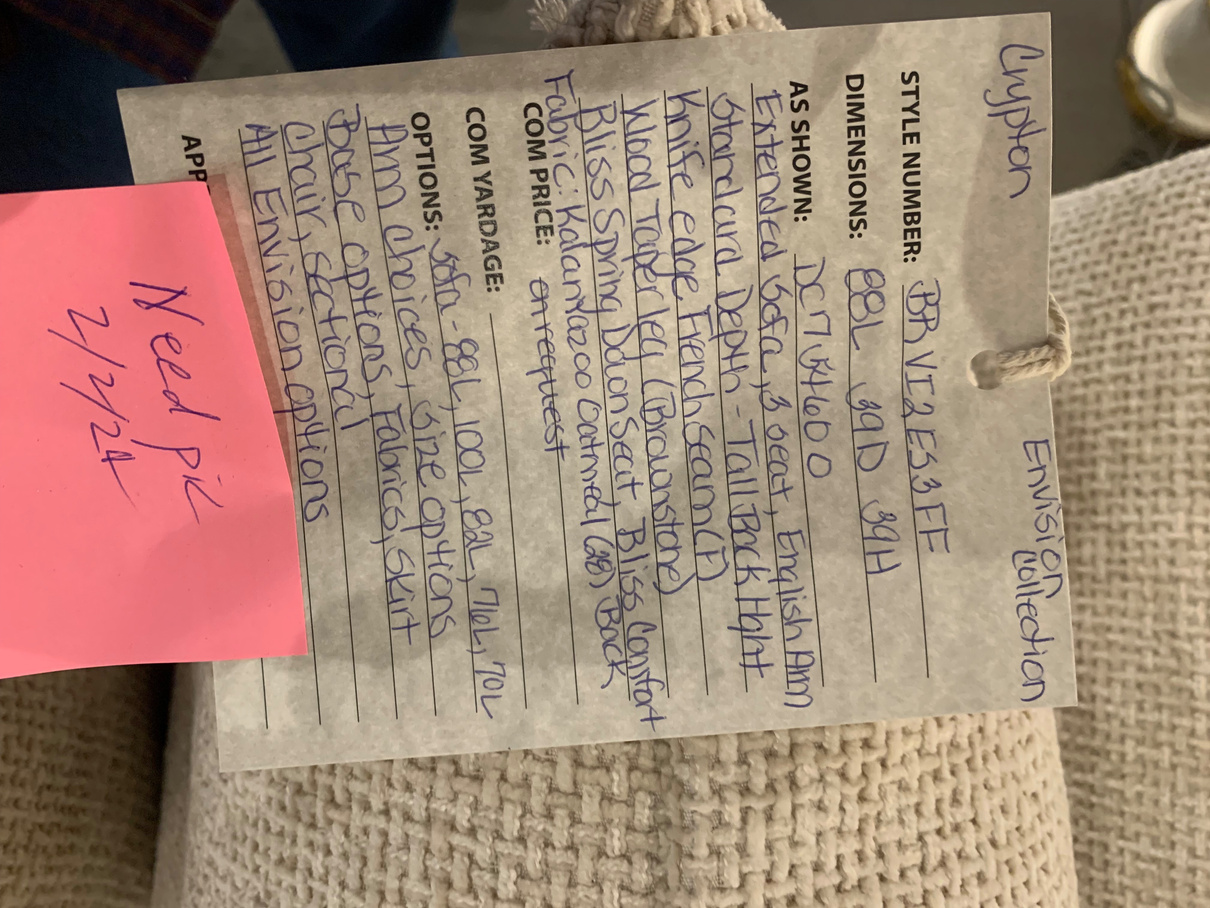 Crypton
Envision
Collection
STYLE NUMBER: BR VI2 ES3FF
DIMENSIONS: 88L 39D 39H
AS SHOWN: DC7546600
Extended Sofa, 3 seat, English Arm
Standard Depth - Tall Back Hght
Knife edge, French Seam (F)
Wood Taper leg (Brownstone)
Bliss Spring Down Seat, Bliss Comfort
Fabric: Kalamazoo Oatmeal (28) Back
COM PRICE: on request
COM YARDAGE:
OPTIONS: Sofa - 88L, 100L, 82L, 76L, 70L
Arm choices, Size options
Base options, Fabrics, Skirt
Chair, Sectional
All Envision options
APP
Need pic
2/2/24